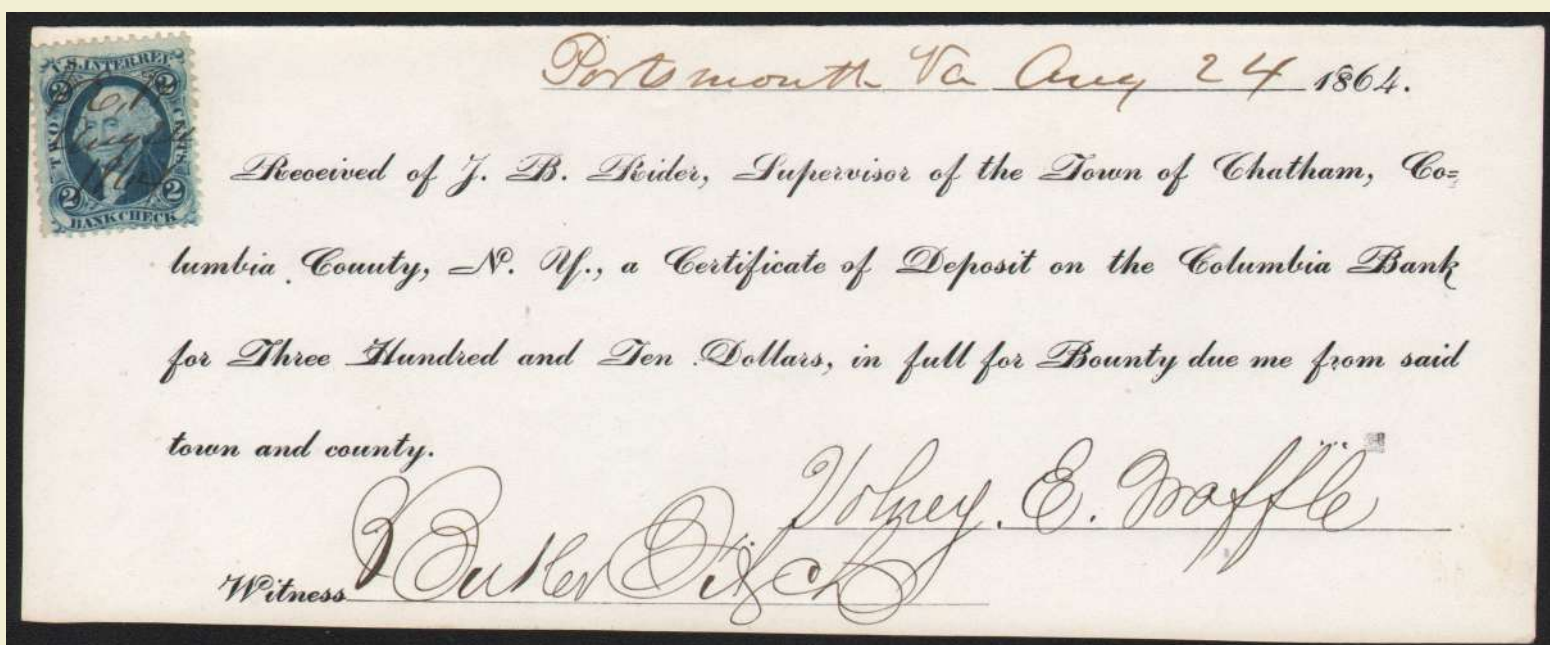 U.S. INTER. REV.
2 2
TWO CENTS
2 2
BANK CHECK
Portsmouth Va Aug 24 1864.
Received of J. B. Rider, Supervisor of the Town of Chatham, Co=
lumbia County, N. Y., a Certificate of Deposit on the Columbia Bank
for Three Hundred and Ten Dollars, in full for Bounty due me from said
town and county.
Volney. E. Traffle
Witness Butler Fitch